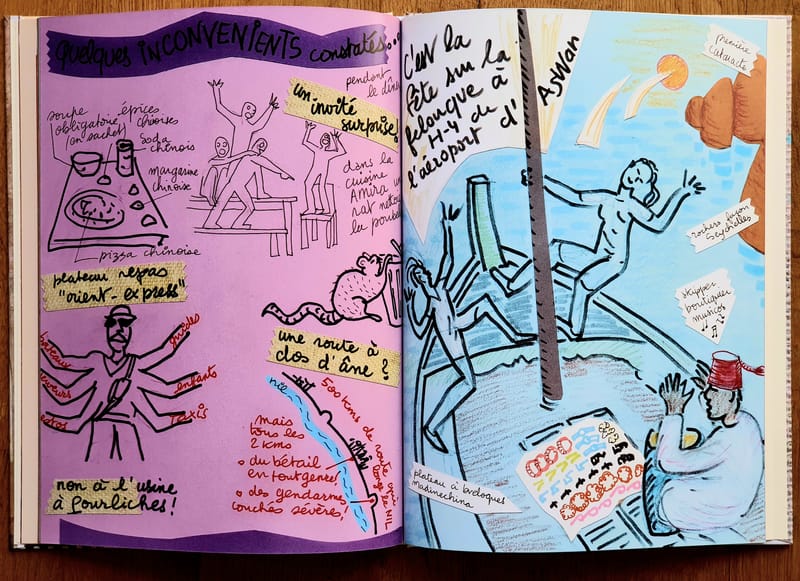 quelques INCONVENIENTS constatés...
soupe
obligatoire
(en sachet)
épices
chinoises
soda
chinois
margarine
chinoise
pizza chinoise
plateau repas
"orient-express"
pendant
le dîne
un invité
surprise!
dans la
cuisine
Amira un
rat nettoie
la poube
bateaux
guides
enfants
taxis
non à l'usine
à pourliches!
une route à
dos d'âne?
nil
500 kms de route
long le NIL
mais
tous les
2 kms
• du bétail
en tout genre!
• des gendarme
couchés sévère!
C'est la
fête sur la
felouque à
H-4 de
l'aéroport d'
ASWAN
première
cataracte
rochers façon
Seychelles
skipper
boutiquier
musicos
plateau à breloques
Madinechina